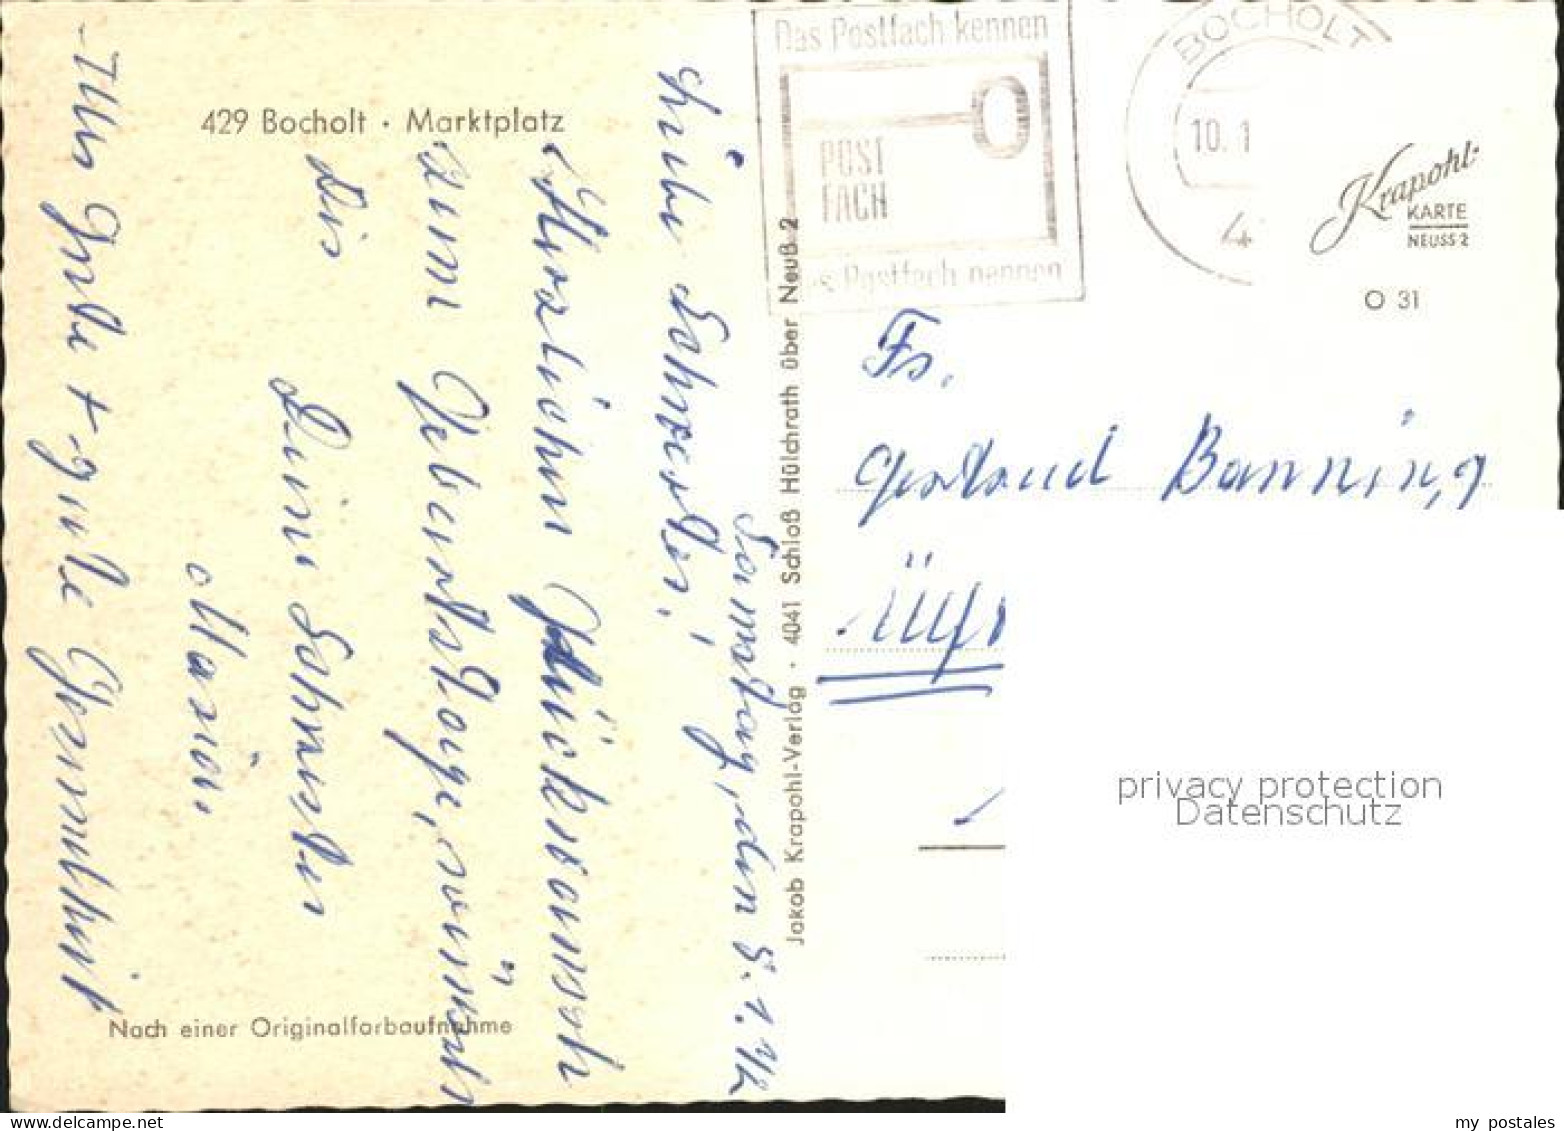 429 Bocholt · Marktplatz
Samstag, den 8. 1. 72
Liebe Schwester!
Herzlichen Glückwunsch
zum Geburtstage, wünscht
Dir
Deine Schwester
Maria.
- Alles Gute + gute Gesundheit
Nach einer Originalfarbaufnahme
Jakob Krapohl-Verlag · 4041 Schloß Hülchrath über Neuß 2
Das Postfach kennen
POST
FACH
s Postfach nennen
BOCHOLT
10. 1
4
Krapohl-
KARTE
NEUSS 2
O 31
Fr.
Gertrud Banning
privacy protection
Datenschutz
my postales